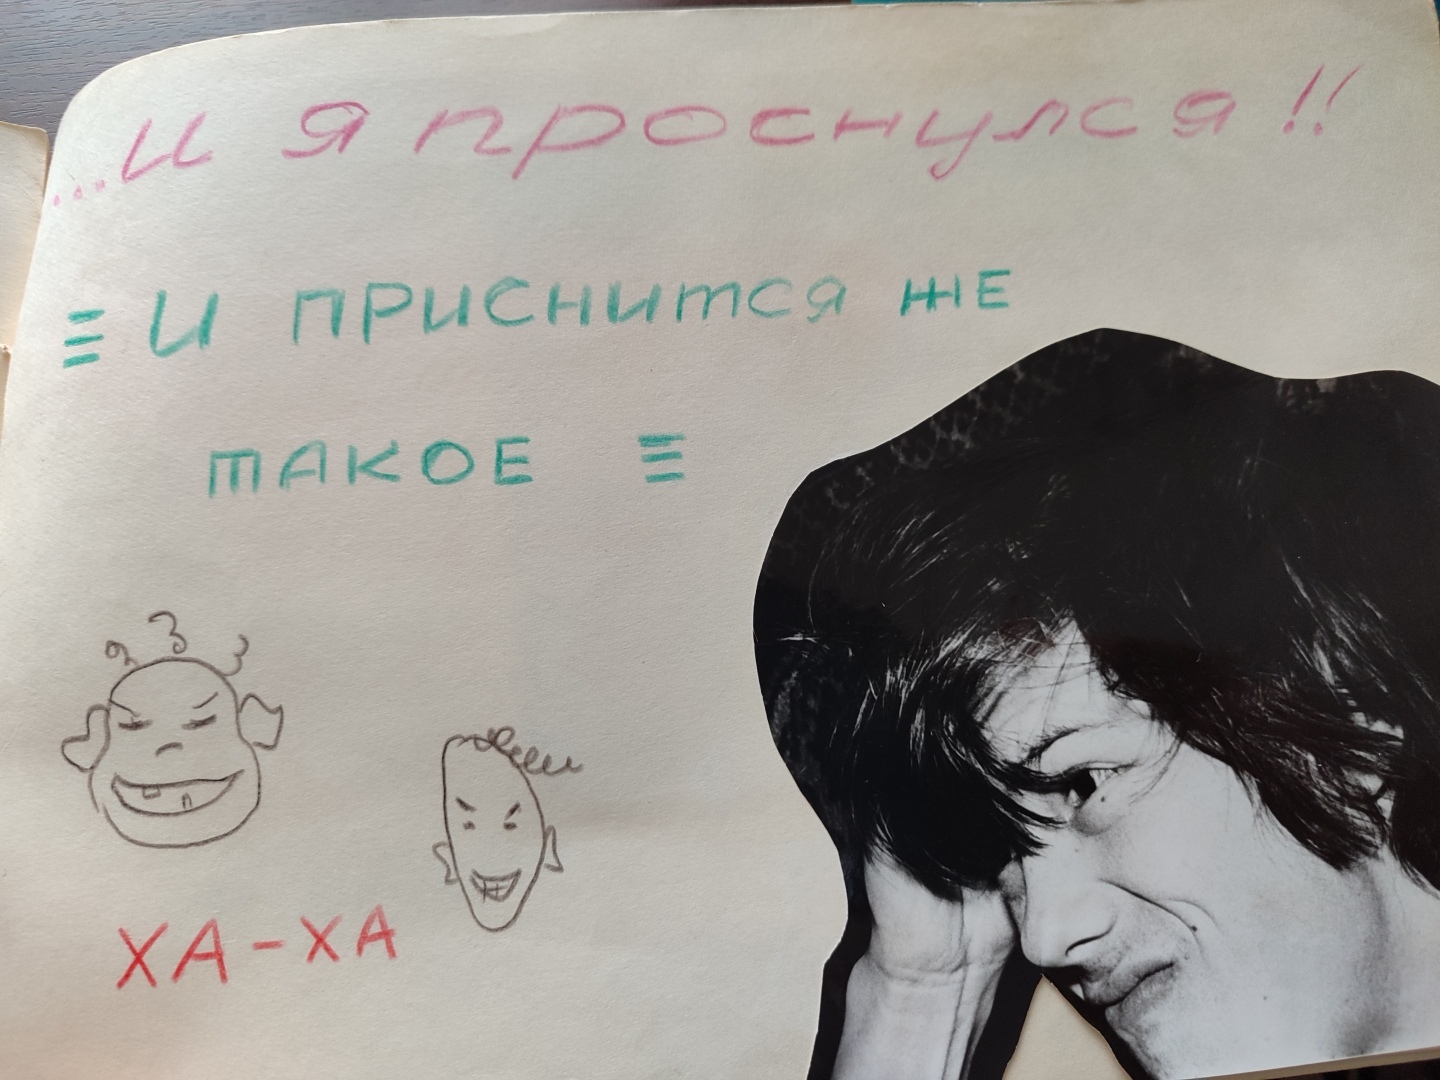 ...И Я ПРОСНУЛСЯ!!
≡ И ПРИСНИТСЯ ЖЕ
ТАКОЕ ≡
ХА-ХА